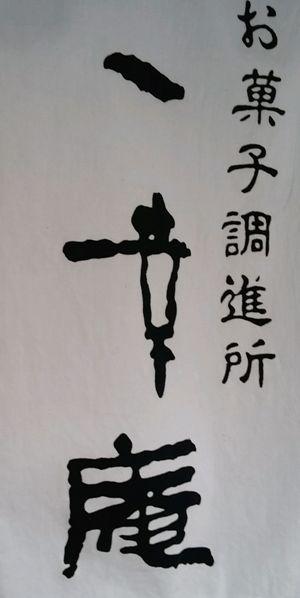 お菓子調進所
一幸庵